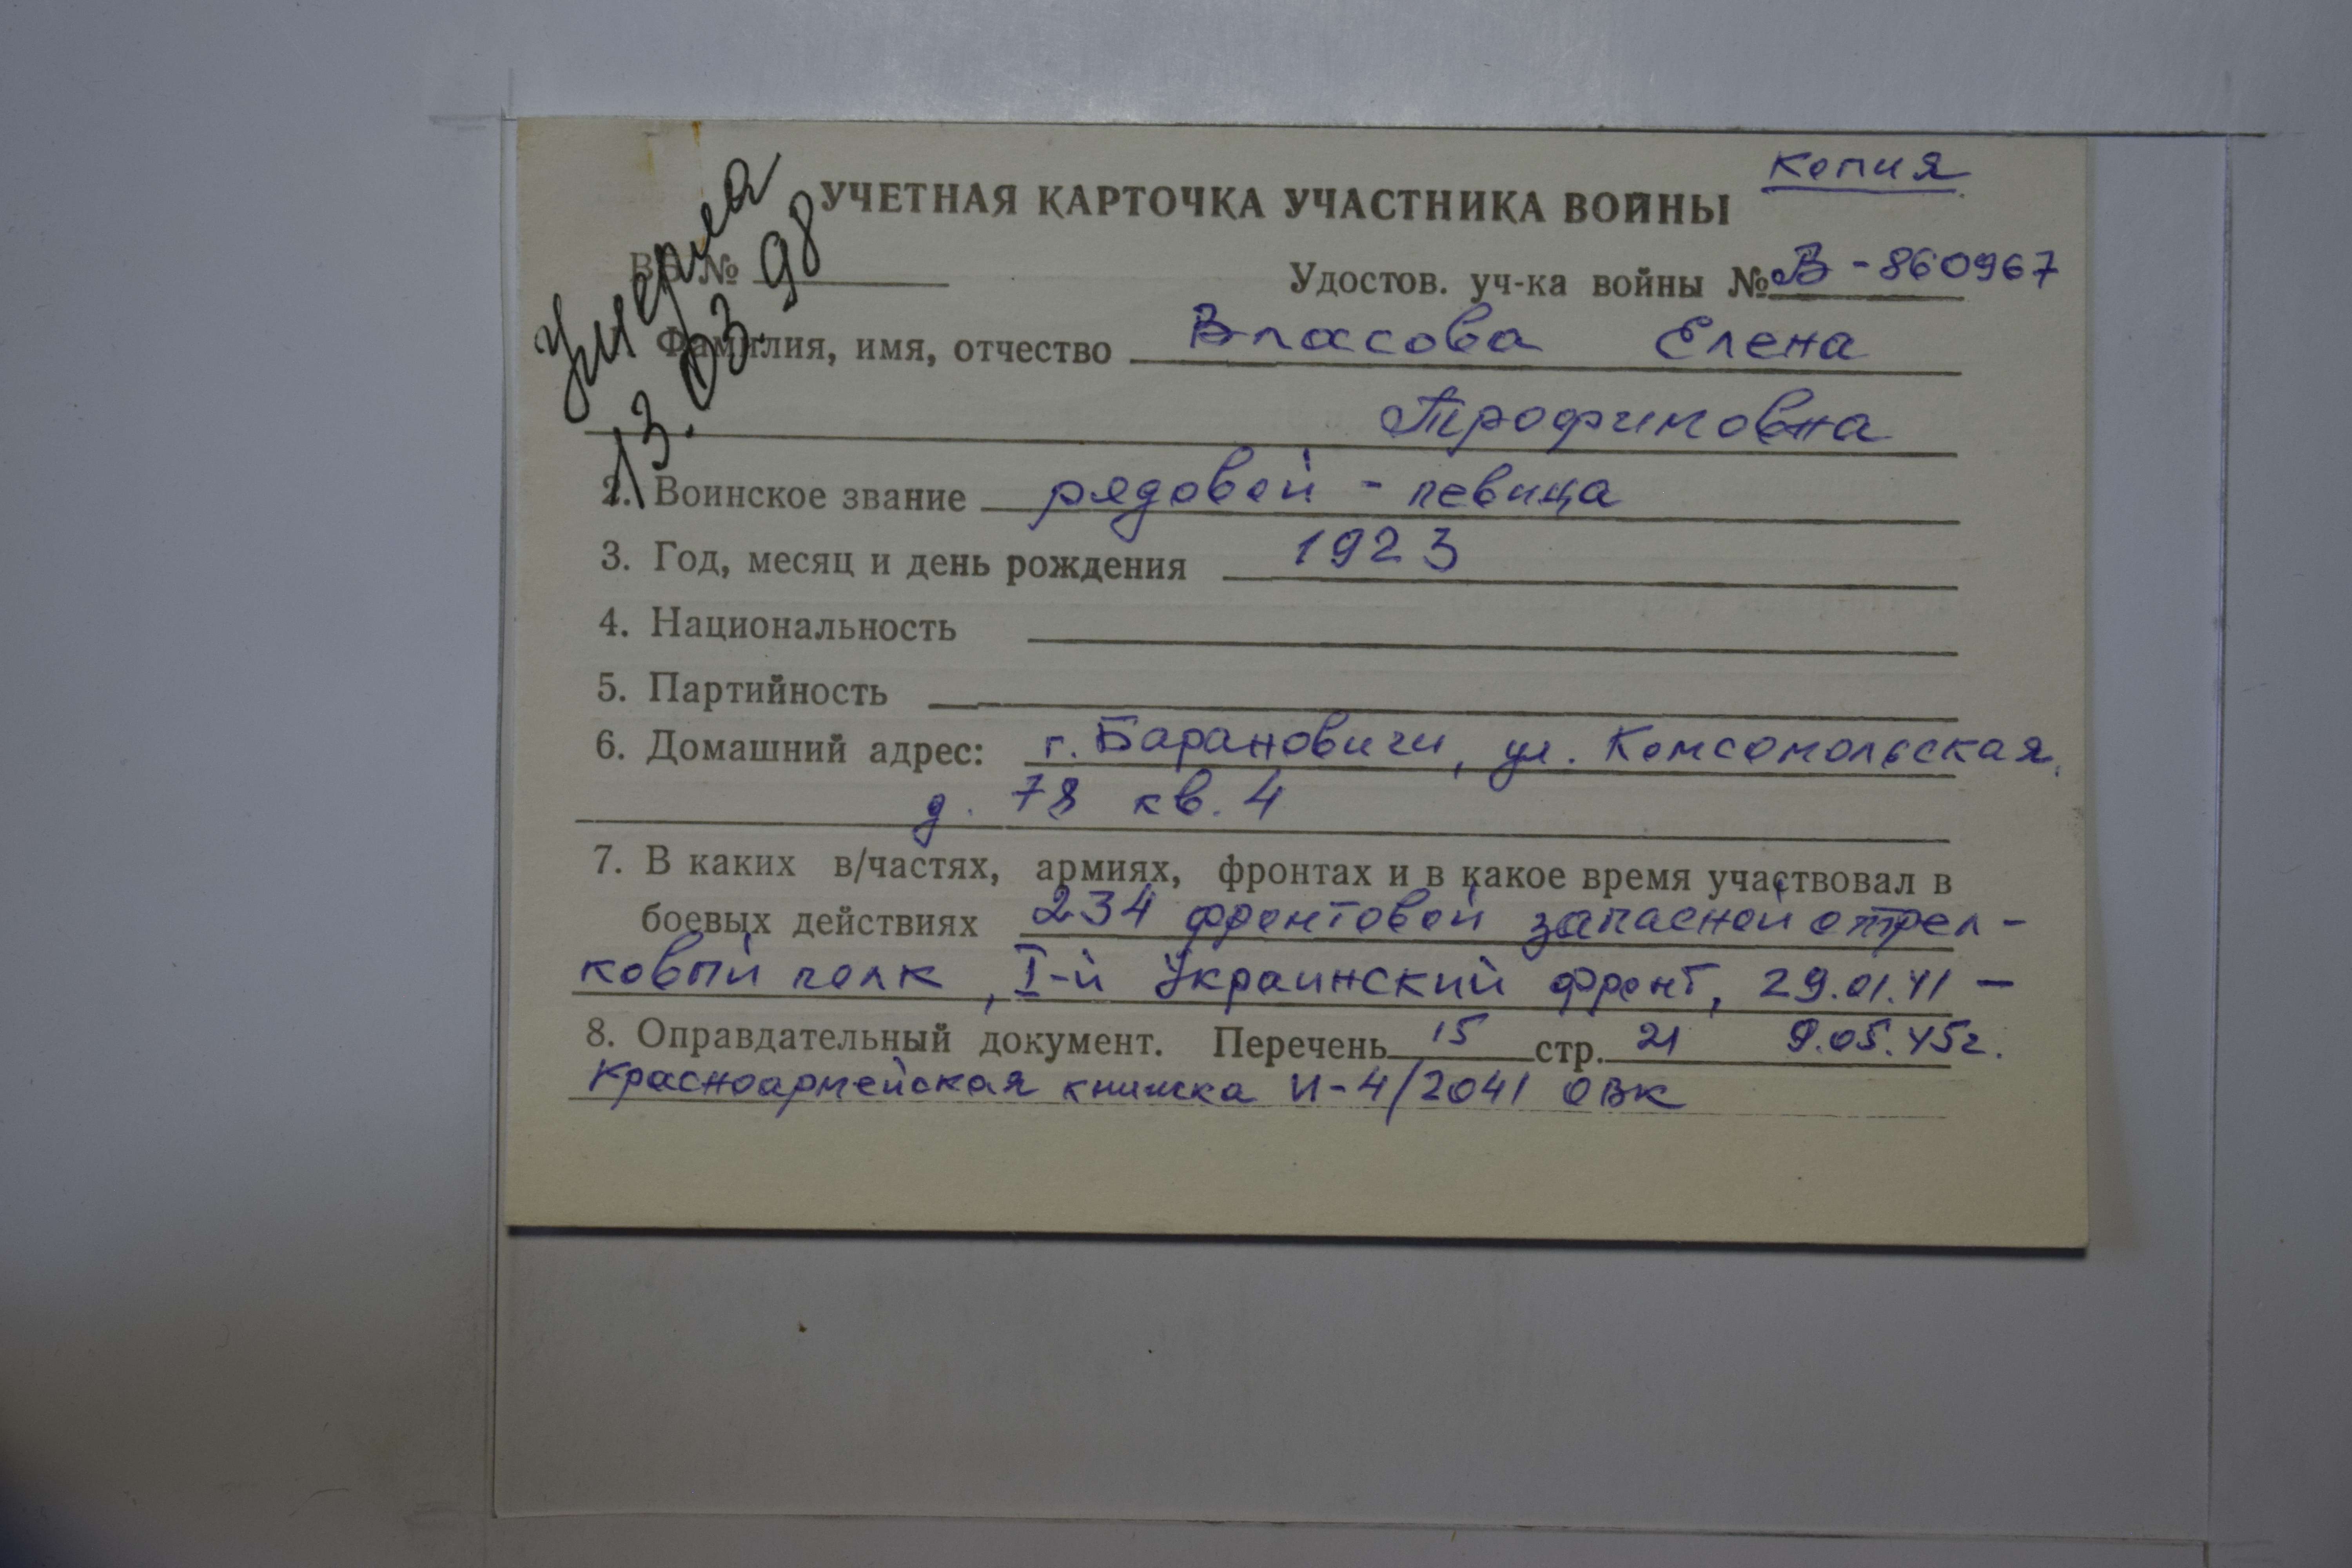 копия
УЧЕТНАЯ КАРТОЧКА УЧАСТНИКА ВОЙНЫ
умерла
13.03.98
№
Удостов. уч-ка войны № В - 860967
Фамилия, имя, отчество Власова Елена
Трофимовна
2. Воинское звание рядовой - певица
3. Год, месяц и день рождения 1923
4. Национальность
5. Партийность
6. Домашний адрес: г. Барановичи, ул. Комсомольская,
д. 78 кв. 4
7. В каких в/частях, армиях, фронтах и в какое время участвовал в
боевых действиях 234 фронтовой запасной стрел-
ковый полк, I-й Украинский фронт, 29.01.41 -
8. Оправдательный документ. Перечень 15 стр. 21 9.05.45г.
Красноармейская книжка И-4/2041 ОВК